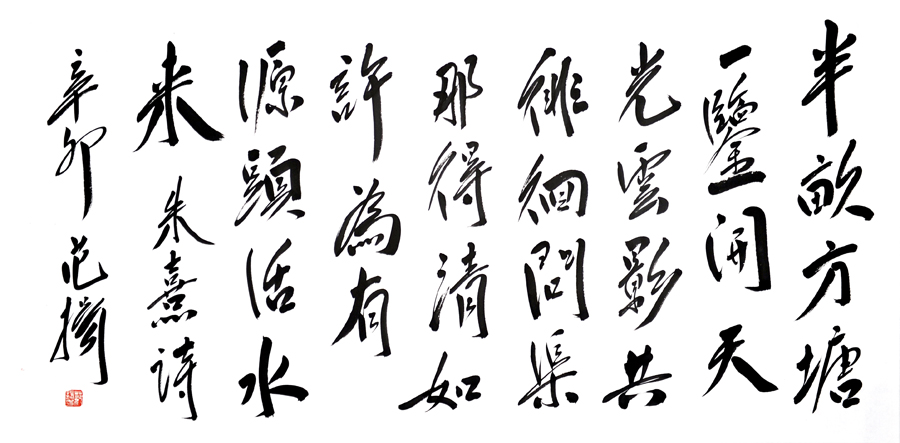 半畝方塘
一鑒開天
光雲影共
徘徊問渠
那得清如
許為有
源頭活水
来 朱熹詩
辛卯 范